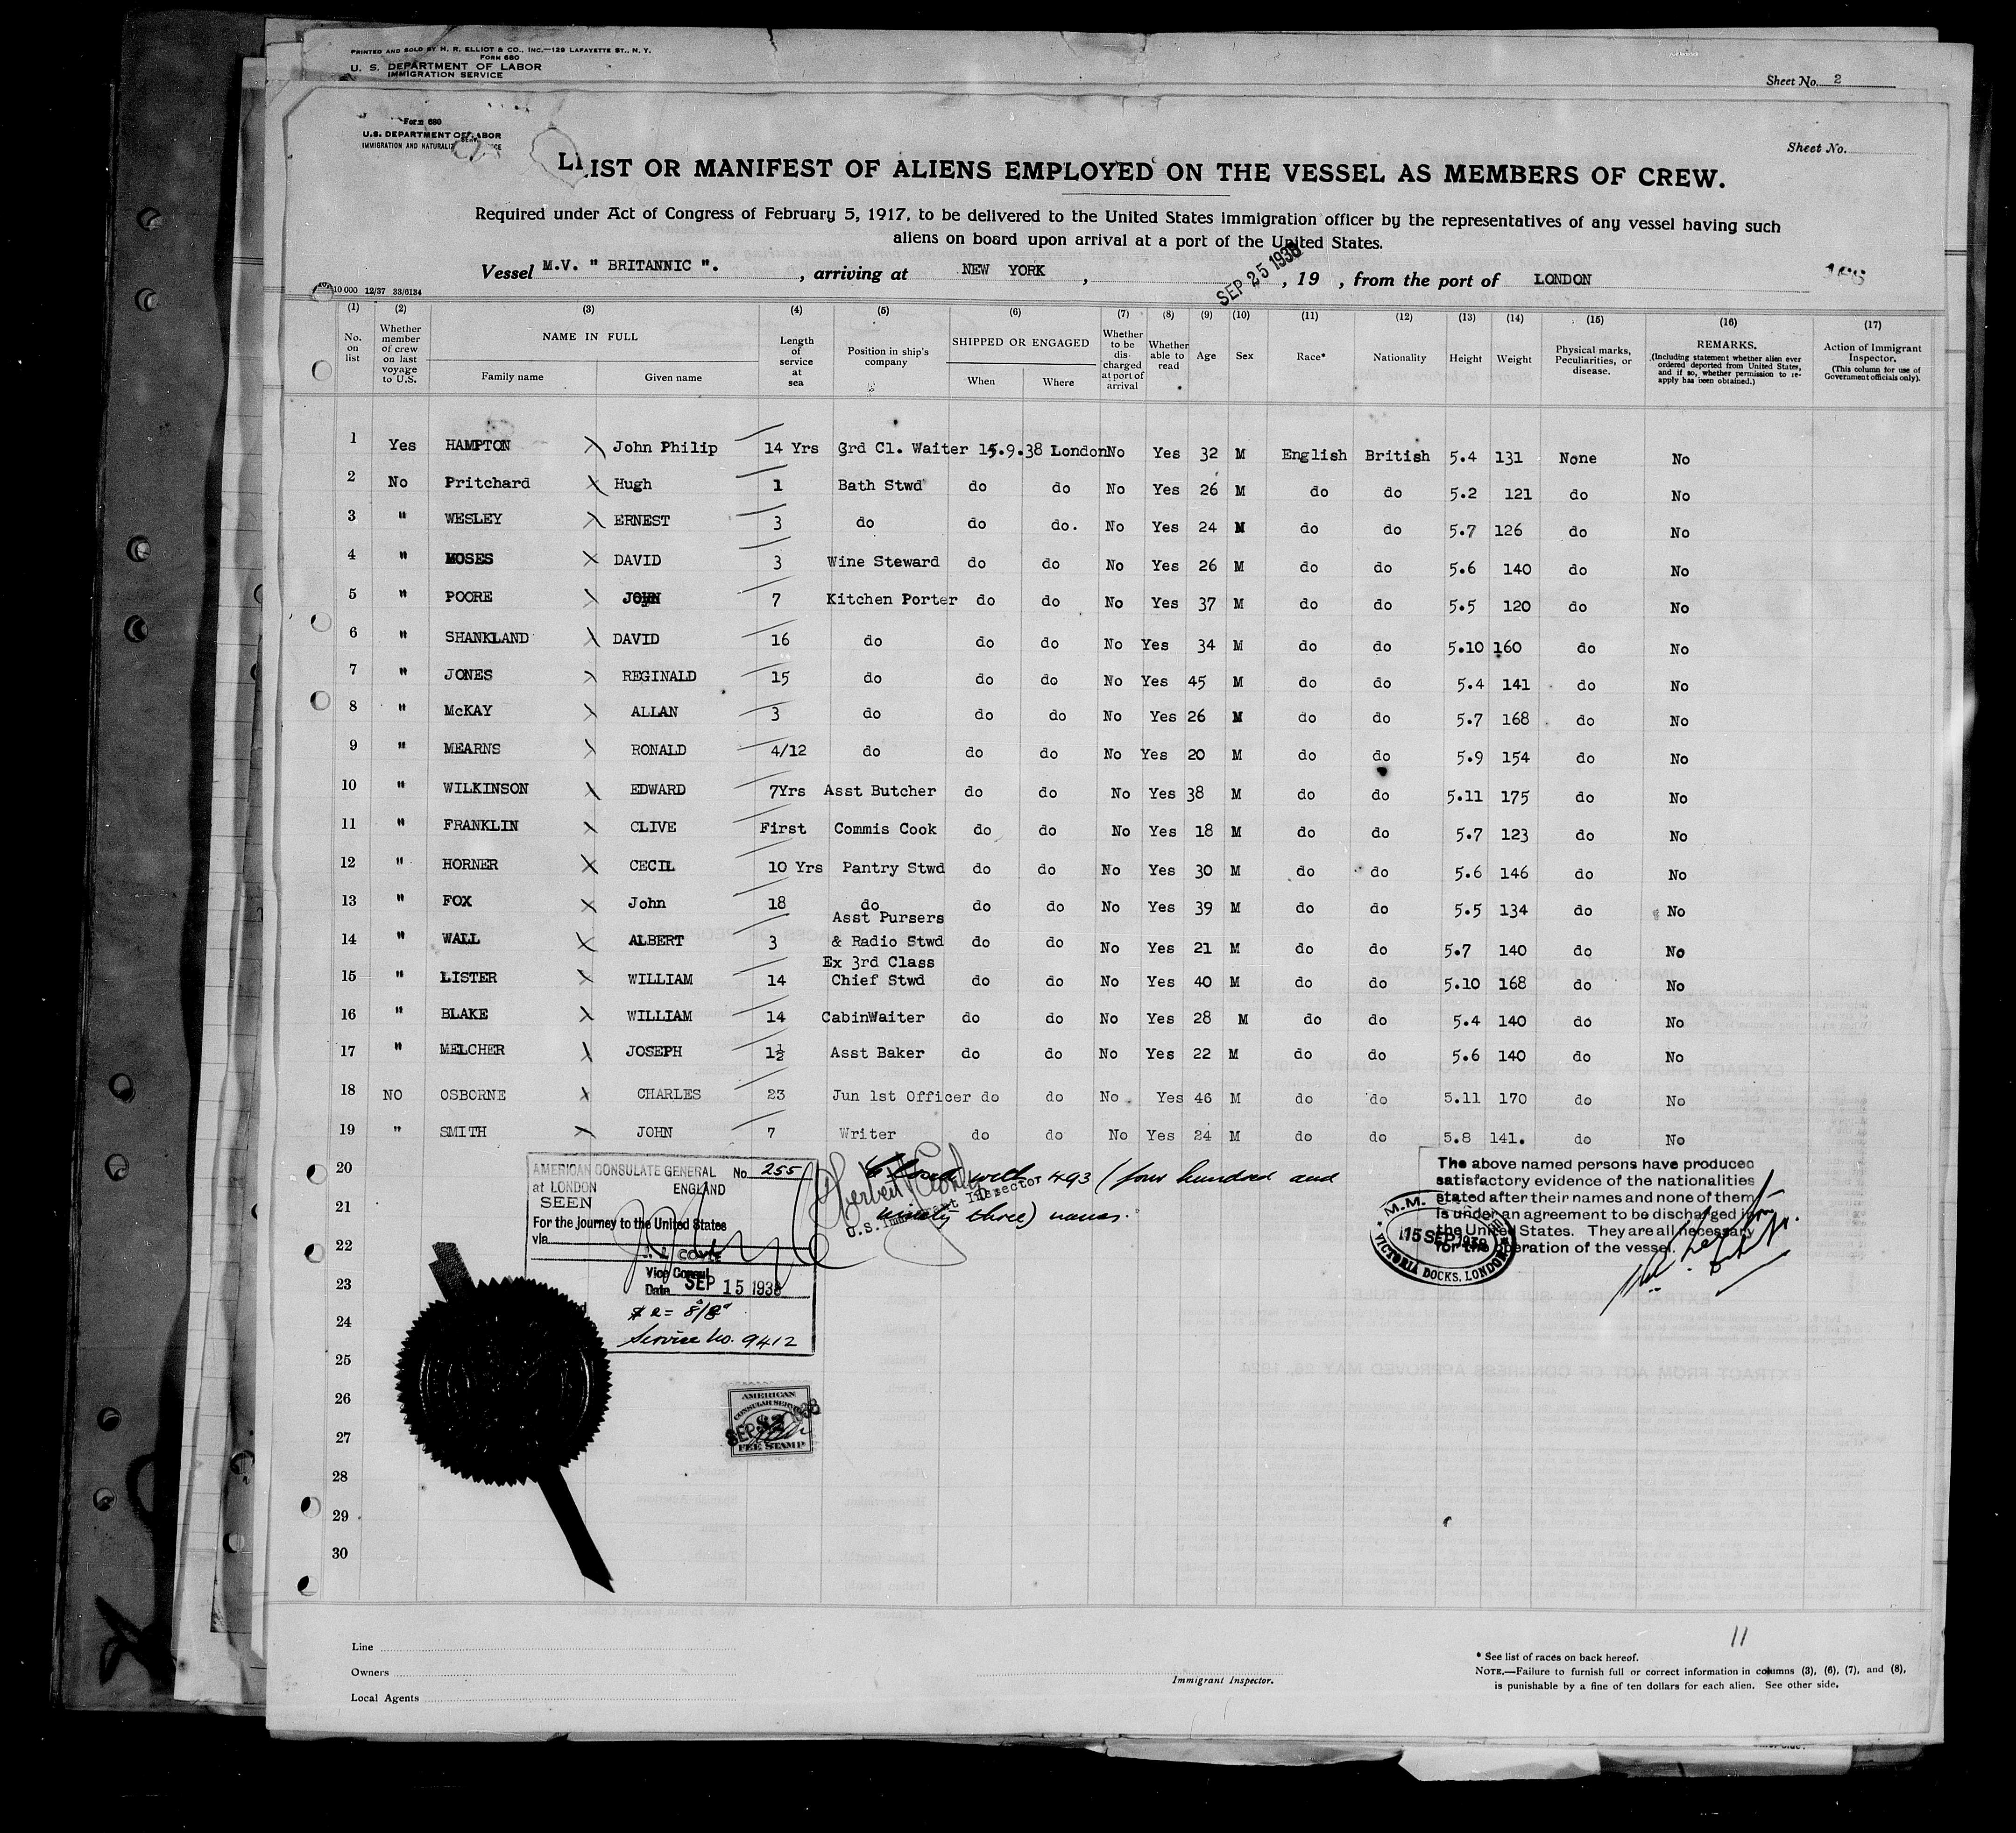 PRINTED AND SOLD BY H. R. ELLIOT & CO., INC.—129 LAFAYETTE ST., N. Y.
FORM 680
U. S. DEPARTMENT OF LABOR
IMMIGRATION SERVICE
Sheet No. 2
Form 680
U.S. DEPARTMENT OF LABOR
IMMIGRATION AND NATURALIZ
Sheet No.
LIIST OR MANIFEST OF ALIENS EMPLOYED ON THE VESSEL AS MEMBERS OF CREW.
Required under Act of Congress of February 5, 1917, to be delivered to the United States immigration officer by the representatives of any vessel having such
aliens on board upon arrival at a port of the United States.
Vessel M.V. " BRITANNIC ". , arriving at NEW YORK , SEP 25 1938 , 19 , from the port of LONDON
10 000 12/37 33/6134
(1) (2) (3) (4) (5) (6) (7) (8) (9) (10) (11) (12) (13) (14) (15) (16) (17)
No. on list
Whether member of crew on last voyage to U.S.
NAME IN FULL
Family name Given name
Length of service at sea
Position in ship's company
SHIPPED OR ENGAGED
When Where
Whether to be dis-charged at port of arrival
Whether able to read
Age Sex Race* Nationality Height Weight
Physical marks, Peculiarities, or disease.
REMARKS.
(Including statement whether alien ever ordered deported from United States, and if so, whether permission to re-apply has been obtained.)
Action of Immigrant Inspector.
(This column for use of Government officials only).
1 Yes HAMPTON X John Philip 14 Yrs Grd Cl. Waiter 15.9.38 London No Yes 32 M English British 5.4 131 None No
2 No Pritchard X Hugh 1 Bath Stwd do do No Yes 26 M do do 5.2 121 do No
3 " WESLEY X ERNEST 3 do do do. No Yes 24 M do do 5.7 126 do No
4 " MOSES X DAVID 3 Wine Steward do do No Yes 26 M do do 5.6 140 do No
5 " POORE X JOHN 7 Kitchen Porter do do No Yes 37 M do do 5.5 120 do No
6 " SHANKLAND X DAVID 16 do do do No Yes 34 M do do 5.10 160 do No
7 " JONES X REGINALD 15 do do do No Yes 45 M do do 5.4 141 do No
8 " McKAY X ALLAN 3 do do do No Yes 26 M do do 5.7 168 do No
9 " MEARNS X RONALD 4/12 do do do No Yes 20 M do do 5.9 154 do No
10 " WILKINSON X EDWARD 7Yrs Asst Butcher do do No Yes 38 M do do 5.11 175 do No
11 " FRANKLIN X CLIVE First Commis Cook do do No Yes 18 M do do 5.7 123 do No
12 " HORNER X CECIL 10 Yrs Pantry Stwd do do No Yes 30 M do do 5.6 146 do No
13 " FOX X John 18 do do do No Yes 39 M do do 5.5 134 do No
Asst Pursers
14 " WALL X ALBERT 3 & Radio Stwd do do No Yes 21 M do do 5.7 140 do No
Ex 3rd Class
15 " LISTER X WILLIAM 14 Chief Stwd do do No Yes 40 M do do 5.10 168 do No
16 " BLAKE X WILLIAM 14 CabinWaiter do do No Yes 28 M do do 5.4 140 do No
17 " MELCHER X JOSEPH 1½ Asst Baker do do No Yes 22 M do do 5.6 140 do No
18 NO OSBORNE X CHARLES 23 Jun 1st Officer do do No Yes 46 M do do 5.11 170 do No
19 " SMITH X JOHN 7 Writer do do No Yes 24 M do do 5.8 141. do No
20
21
22
23
24
25
26
27
28
29
30
AMERICAN CONSULATE GENERAL No. 255
at LONDON ENGLAND
SEEN
For the Journey to the United States
via
COYLE
Vice Consul
Date SEP 15 1938
Service No. 9412
U.S. Immigrant Inspector
Closed with 493 (four hundred and
ninety three) names.
The above named persons have produced
satisfactory evidence of the nationalities
stated after their names and none of them
is under an agreement to be discharged in
the United States. They are all necessary
for the operation of the vessel.
M.M.
15 SEP 1938
VICTORIA DOCKS, LONDON
AMERICAN
CONSULAR SERVICE
FEE STAMP
11
Line
Owners
Local Agents
Immigrant Inspector.
* See list of races on back hereof.
NOTE.—Failure to furnish full or correct information in columns (3), (6), (7), and (8),
is punishable by a fine of ten dollars for each alien. See other side.